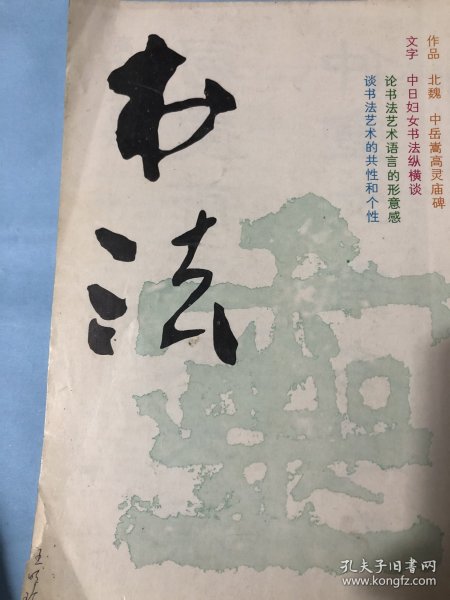 书法
作品 北魏 中岳嵩高灵庙碑
文字 中日妇女书法纵横谈
论书法艺术语言的形意感
谈书法艺术的共性和个性
孔夫子旧书网
www.kongfz.com